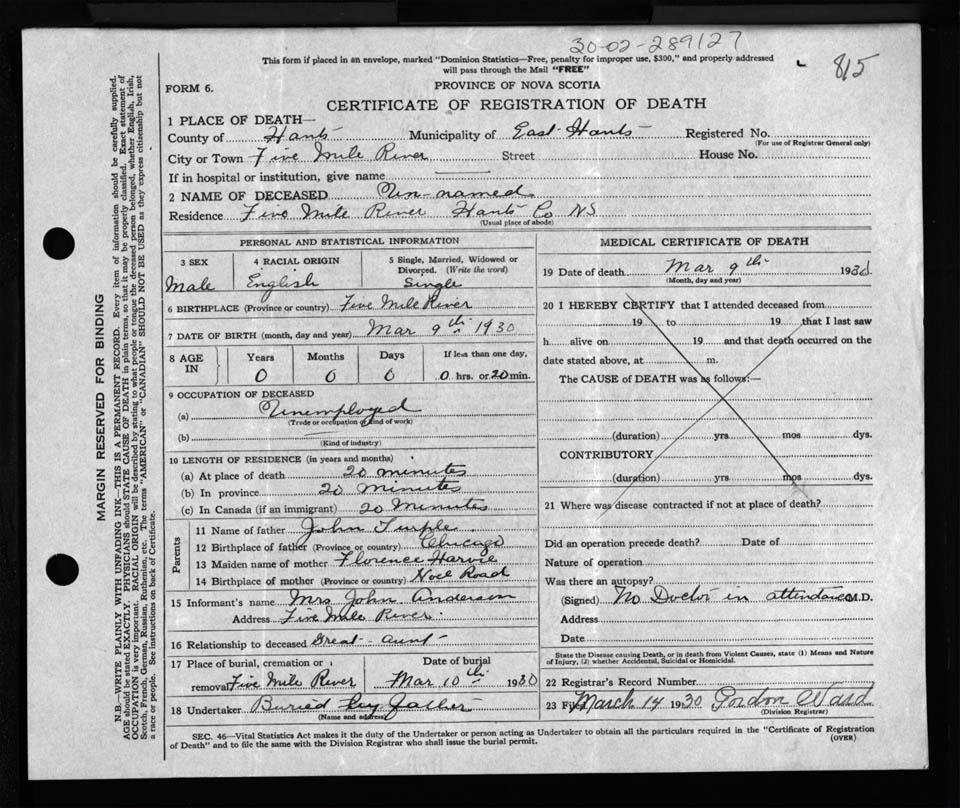 30-02-289127
815
This form if placed in an envelope, marked "Dominion Statistics—Free, penalty for improper use, $300," and properly addressed
will pass through the Mail "FREE"
FORM 6.
PROVINCE OF NOVA SCOTIA
CERTIFICATE OF REGISTRATION OF DEATH
1 PLACE OF DEATH—
County of Hants Municipality of East Hants Registered No.
(For use of Registrar General only)
City or Town Five Mile River Street House No.
If in hospital or institution, give name
2 NAME OF DECEASED Un-named
Residence Five Mile River Hants Co NS
(Usual place of abode)
PERSONAL AND STATISTICAL INFORMATION
3 SEX
Male
4 RACIAL ORIGIN
English
5 Single, Married, Widowed or
Divorced. (Write the word)
Single
6 BIRTHPLACE (Province or country) Five Mile River
7 DATE OF BIRTH (month, day and year) Mar 9th 1930
8 AGE IN Years Months Days If less than one day,
0 0 0 0 hrs. or 20 min.
9 OCCUPATION OF DECEASED
(a) Unemployed
(Trade or occupation or kind of work)
(b)
(Kind of industry)
10 LENGTH OF RESIDENCE (in years and months)
(a) At place of death 20 minutes
(b) In province 20 Minutes
(c) In Canada (if an immigrant) 20 Minutes
Parents
11 Name of father John Turple
12 Birthplace of father (Province or country) Chicago
13 Maiden name of mother Florence Harvie
14 Birthplace of mother (Province or country) Noel Road
15 Informant's name Mrs John Anderson
Address Five Mile River
16 Relationship to deceased Great-Aunt
17 Place of burial, cremation or removal Five Mile River
Date of burial
Mar 10th 1930
18 Undertaker Buried by father
(Name and address)
MEDICAL CERTIFICATE OF DEATH
19 Date of death Mar 9th 1930
(Month, day and year)
20 I HEREBY CERTIFY that I attended deceased from
19 to 19 that I last saw
h alive on 19 and that death occurred on the
date stated above, at m.
The CAUSE of DEATH was as follows:—
(duration) yrs mos dys.
CONTRIBUTORY
(duration) yrs mos dys.
21 Where was disease contracted if not at place of death?
Did an operation precede death? Date of
Nature of operation
Was there an autopsy?
(Signed) No Doctor in attendance M.D.
Address
Date
State the Disease causing Death, or in death from Violent Causes, state (1) Means and Nature
of Injury, (2) whether Accidental, Suicidal or Homicidal.
22 Registrar's Record Number
23 Filed March 14 1930 Gordon Ward
(Division Registrar)
SEC. 46—Vital Statistics Act makes it the duty of the Undertaker or person acting as Undertaker to obtain all the particulars required in the "Certificate of Registration
of Death" and to file the same with the Division Registrar who shall issue the burial permit.
(OVER)
MARGIN RESERVED FOR BINDING
N.B.—WRITE PLAINLY WITH UNFADING INK—THIS IS A PERMANENT RECORD. Every item of information should be carefully supplied.
AGE should be stated EXACTLY. PHYSICIANS should STATE CAUSE OF DEATH in plain terms, so that it may be properly classified. Exact statement of
OCCUPATION is very important. RACIAL ORIGIN will be described by stating to what people or tongue the deceased person belonged, whether English, Irish,
Scotch, French, German, Russian, Ruthenian, etc. The terms "AMERICAN" or "CANADIAN" SHOULD NOT BE USED as they express citizenship but not
a race or people. See instructions on back of Certificate.